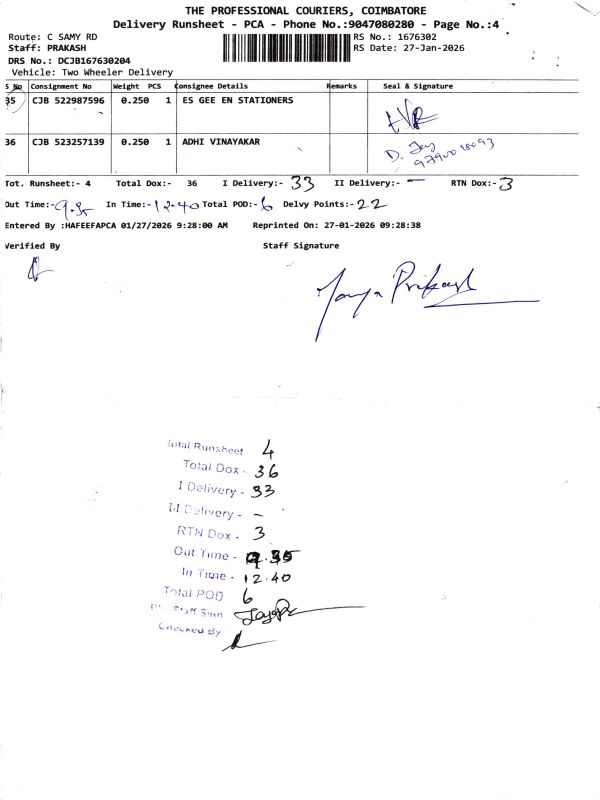 THE PROFESSIONAL COURIERS, COIMBATORE
Delivery Runsheet - PCA - Phone No.:9047080280 - Page No.:4
Route: C SAMY RD RS No.: 1676302
Staff: PRAKASH RS Date: 27-Jan-2026
DRS No.: DCJB167630204
Vehicle: Two Wheeler Delivery
S No Consignment No Weight PCS Consignee Details Remarks Seal & Signature
35 CJB 522987596 0.250 1 ES GEE EN STATIONERS
36 CJB 523257139 0.250 1 ADHI VINAYAKAR D. Jay
Tot. Runsheet:- 4 Total Dox:- 36 I Delivery:- 33 II Delivery:- - RTN Dox:- 3
Out Time:- 9.35 In Time:- 12.40 Total POD:- 6 Delvy Points:- 22
Entered By :HAFEEFAPCA 01/27/2026 9:28:00 AM Reprinted On: 27-01-2026 09:28:38
Verified By Staff Signature
Jaya Prakash
Total Runsheet 4
Total Dox - 36
I Delivery - 33
I-I Delivery - -
RTN Dox - 3
Out Time - 9.35
In Time - 12.40
Total POD 6
Staff Sign
Checked By